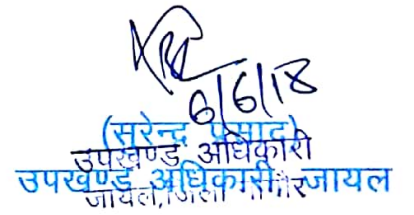 6/6/18
(सुरेन्द्र प्रसाद)
उपखण्ड अधिकारी
उपखण्ड अधिकारी, जायल
जायल, जिला नागौर